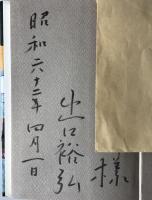 昭和六十二年四月一日
山口裕弘
様